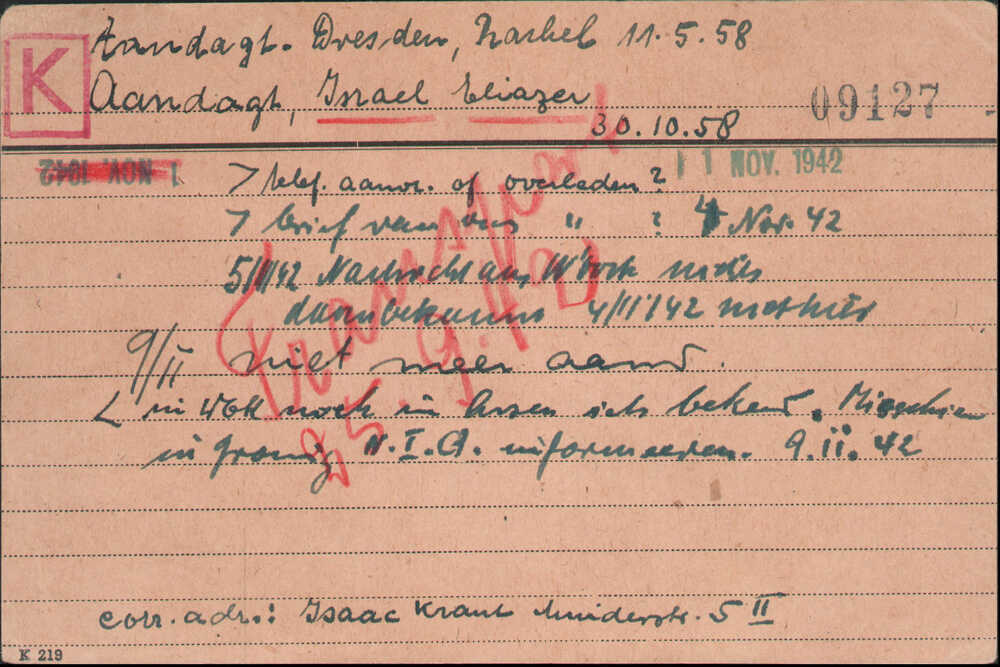 K
Aandagt. Dresden, Rachel 11.5.58
Aandagt, Israel Eliazer
09127
30.10.58
1 NOV. 1942
11 NOV. 1942
> telef. aanw. of overleden?
> brief van ons " ? 4 Nov. 42
5/11/42 Nachricht aus W'bork nichts
darin bekannt 4/11/42
9/11 niet meer aanw.
Transport
25.9.42
< in Wbk noch in Assen iets bekend. Misschien
in Gron. N.I.G. informeeren. 9.11.42
corr. adr.: Isaac Krant Muiderstr. 5 II
K 219